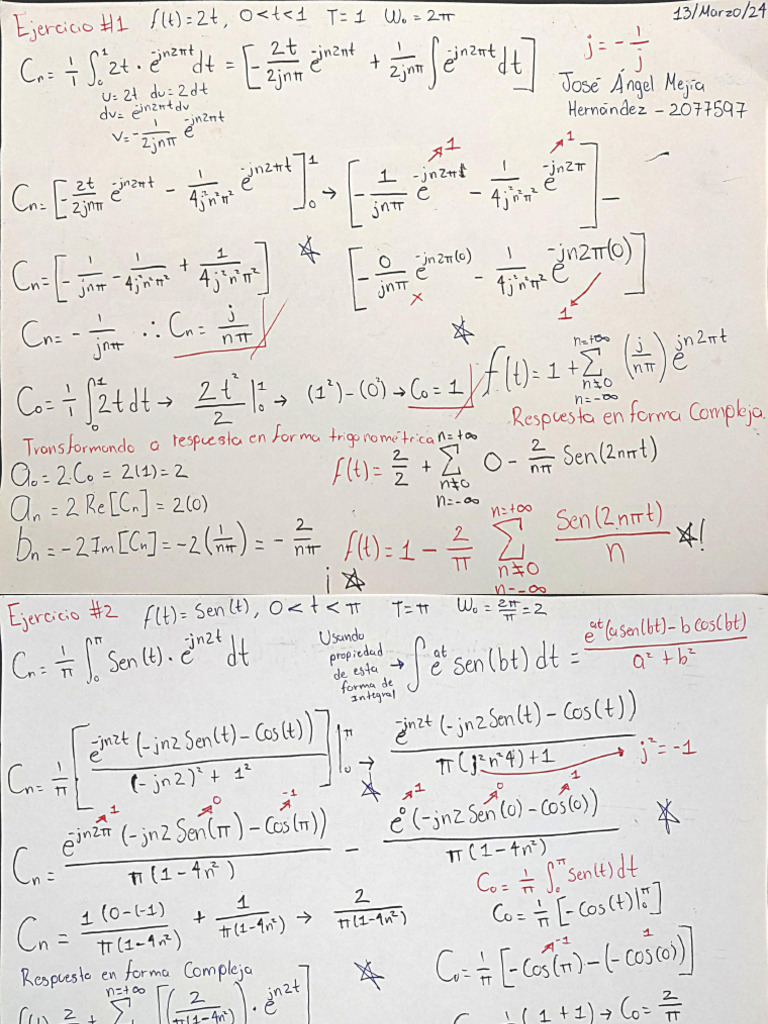 Ejercicio #1 f(t)=2t, 0<t<1 T=1 W₀=2π
13/Marzo/24
Cn=1/1 ∫₀¹ 2t·e^(-jn2πt) dt = [-2t/2jnπ e^(-jn2πt) + 1/2jnπ ∫ e^(-jn2πt) dt]
j=-1/j
u=2t du=2dt
dv=e^(-jn2πt) dv
v=-1/2jnπ e^(-jn2πt)
José Ángel Mejía
Hernández - 2077597
Cn=[-2t/2jnπ e^(-jn2πt) - 1/4j²n²π² e^(-jn2πt)]₀¹ → [-1/jnπ e^(-jn2π1) ↗1 - 1/4j²n²π² e^(-jn2π) ↗1] -
Cn=[-1/jnπ - 1/4j²n²π² + 1/4j²n²π²]
[-0/jnπ e^(-jn2π(0)) - 1/4j²n²π² e^(-jn2π(0))]
x 1
Cn=-1/jnπ ∴ Cn=j/nπ
C₀=1/1 ∫₀¹ 2tdt → 2t²/2 |₀¹ → (1²)-(0²) → C₀=1
f(t)=1+ Σ n=+∞ n≠0 n=-∞ (j/nπ) e^(jn2πt)
Respuesta en forma Compleja.
Transformando a respuesta en forma trigonométrica
a₀=2·C₀=2(1)=2
f(t)=2/2 + Σ n=+∞ n≠0 n=-∞ 0 - 2/nπ Sen(2nπt)
an=2Re[Cn]=2(0)
bn=-2Im[Cn]=-2(1/nπ)=-2/nπ
f(t)=1-2/π Σ n=+∞ n≠0 n=-∞ Sen(2nπt)/n !
Ejercicio #2 f(t)=Sen(t), 0<t<π T=π W₀=2π/π=2
Cn=1/π ∫₀^π Sen(t)·e^(-jn2t) dt
Usando
propiedad
de esta
forma de
Integral
→ ∫ e^(at) sen(bt) dt = e^(at)(a sen(bt)-b cos(bt))/a²+b²
Cn=1/π [e^(-jn2t)(-jn2Sen(t)-Cos(t))/(-jn2)²+1²] |₀^π → e^(-jn2t)(-jn2Sen(t)-Cos(t))/π(j²n²4)+1 → j²=-1
Cn= e^(-jn2π) ↗1 (-jn2Sen(π) ↗0 -Cos(π) ↗-1)/π(1-4n²) - e⁰ ↗1 (-jn2Sen(0) ↗0 -Cos(0) ↗1)/π(1-4n²)
C₀=1/π ∫₀^π Sen(t)dt
C₀=1/π [-Cos(t)|₀^π]
Cn=1(0-(-1)/π(1-4n²) + 1/π(1-4n²) → 2/π(1-4n²)
C₀=1/π [-Cos(π) ↗-1 -(-cos(0) 1)]
Respuesta en forma Compleja
1/π (1+1) → C₀=2/π
f(t) 2/π + Σ n=+∞ [(2/π(1-4n²))·e^(jn2t)]